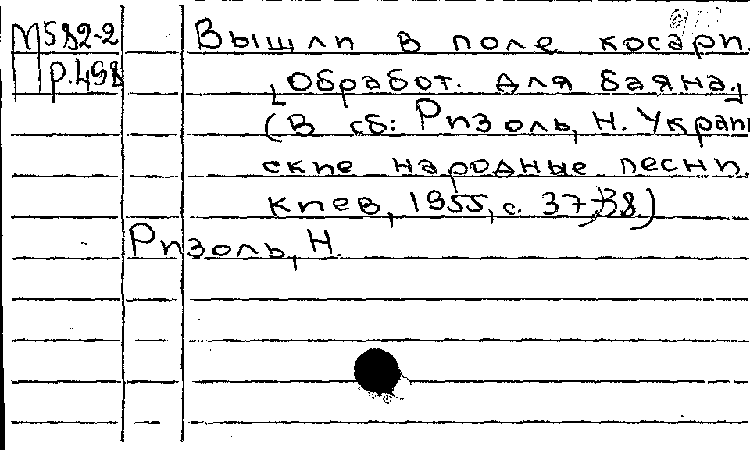 М582-2
р.498
Вышли в поле косари.
[Обработ. для баяна]
(В сб: Ризоль, Н. Украин
ские народные песни.
Киев, 1955, с. 37-38.)
Ризоль, Н.